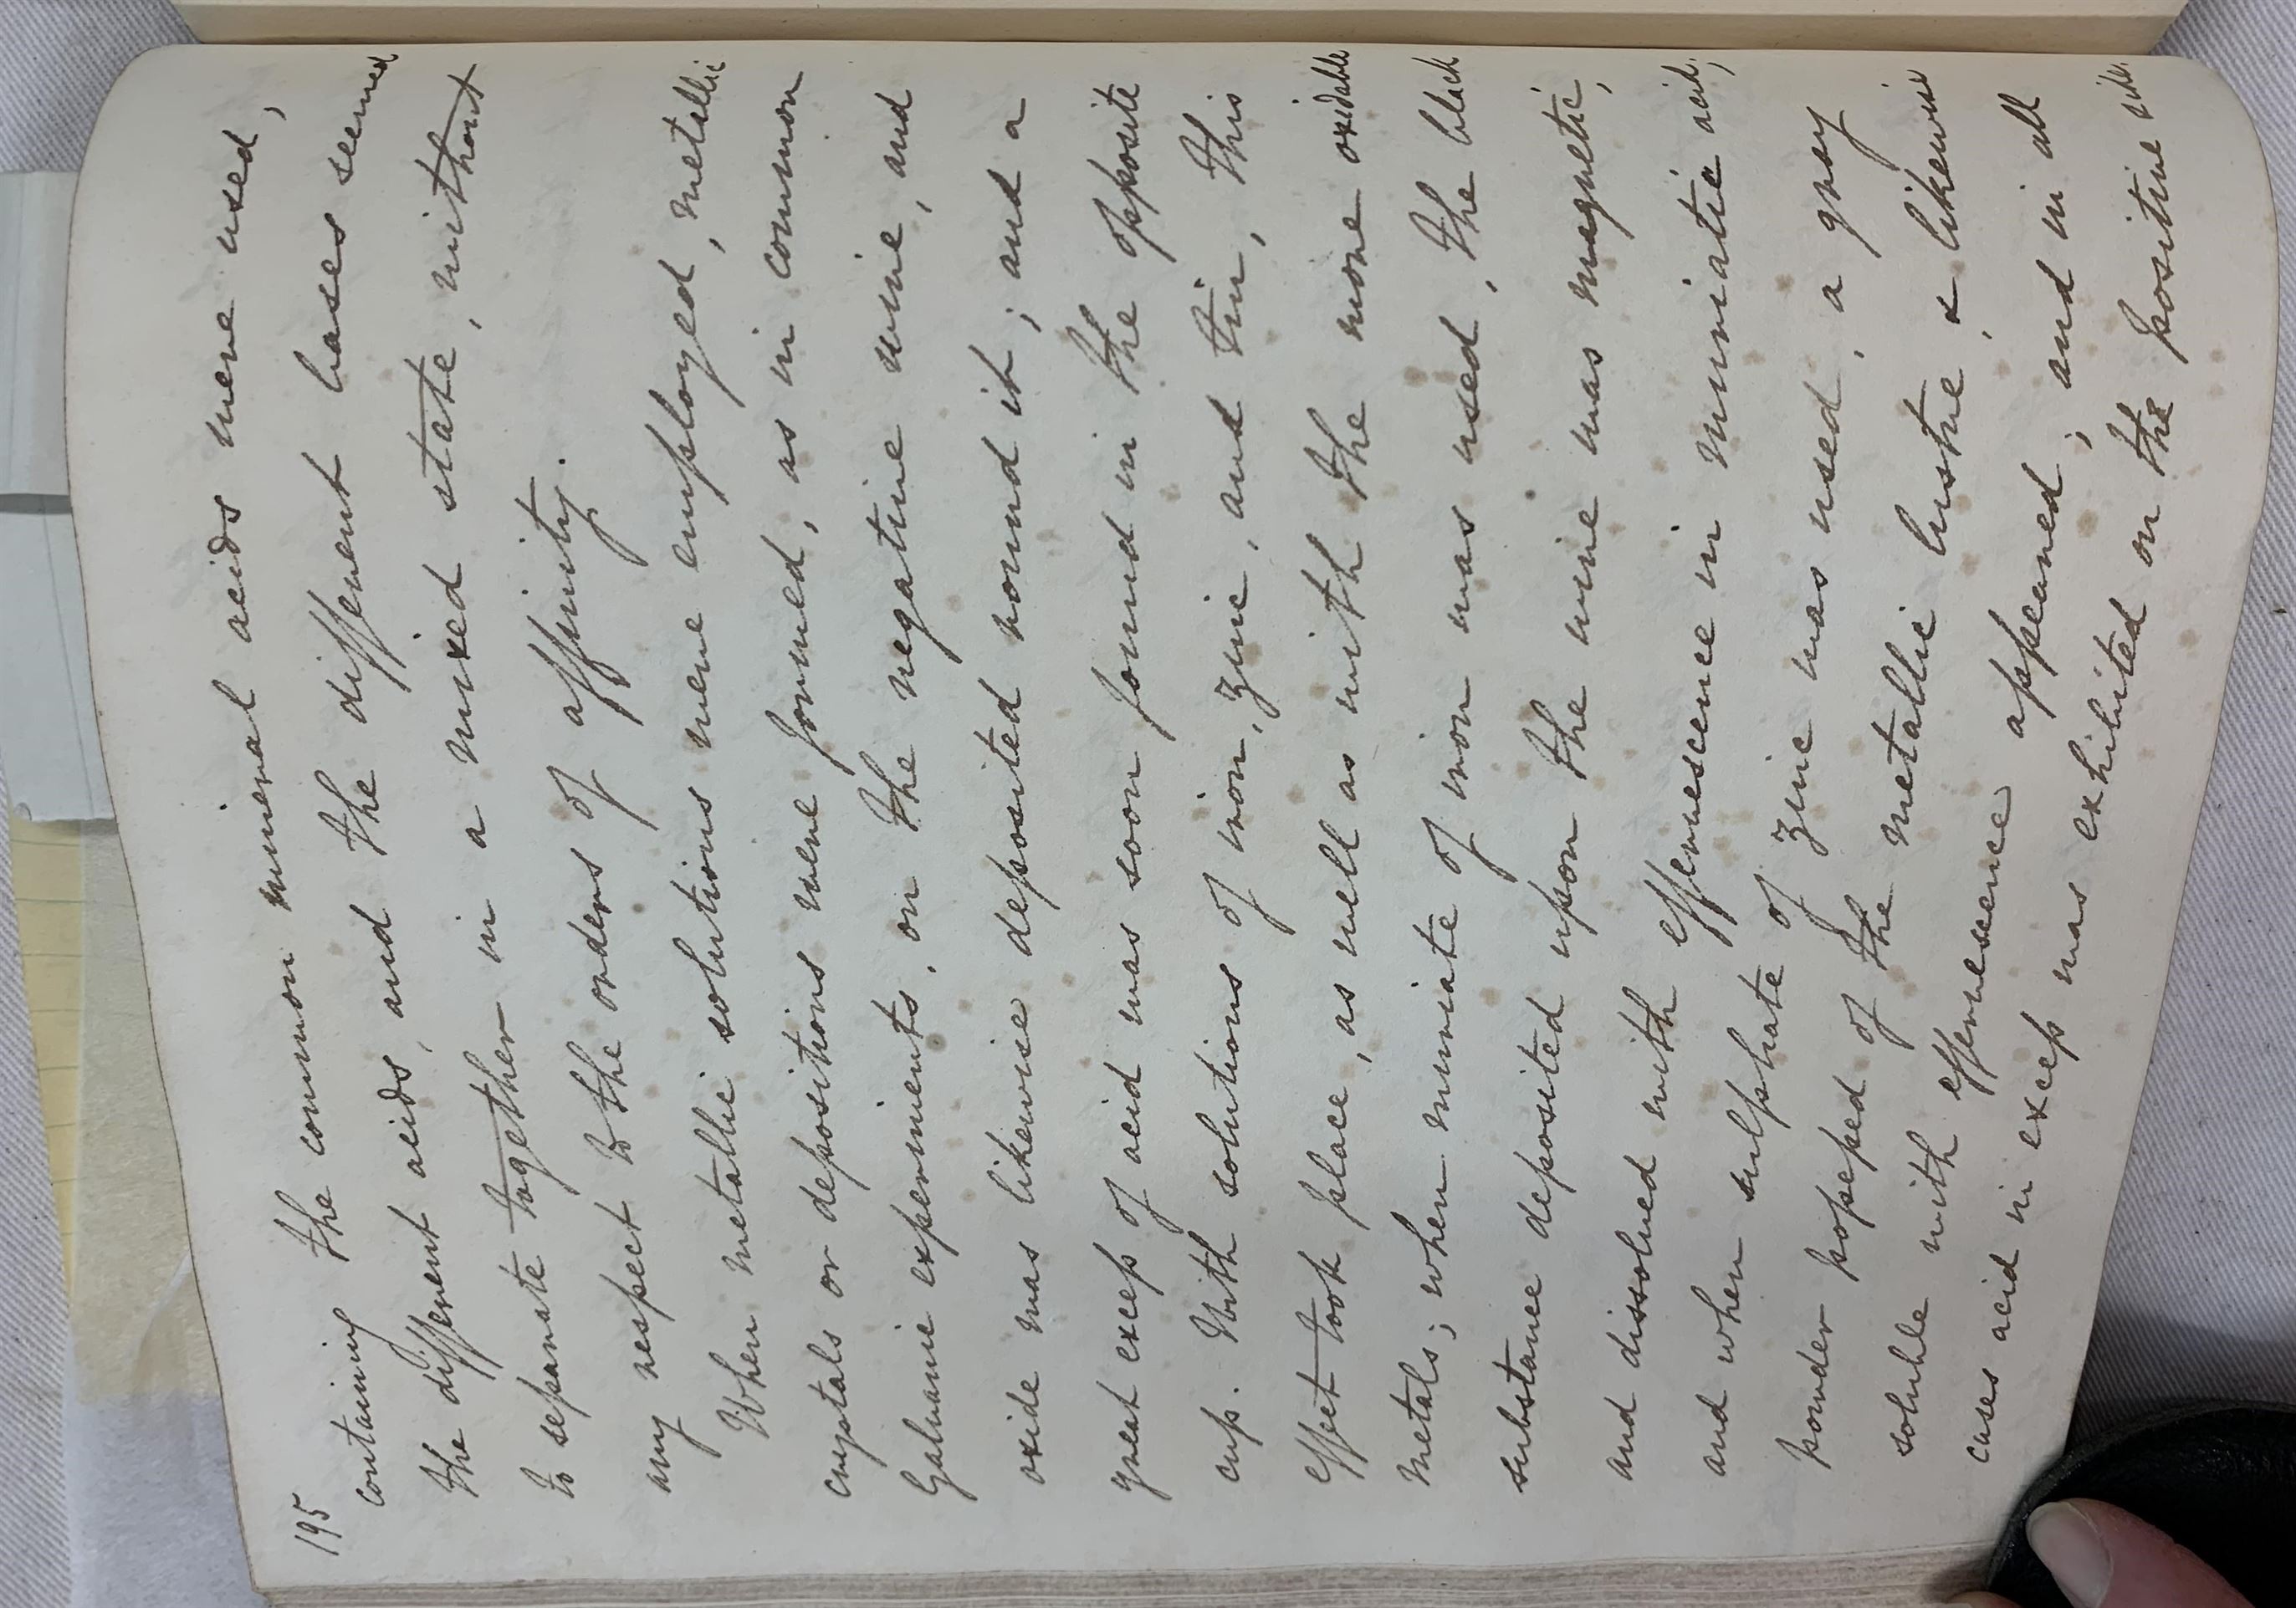 195
containing the common mineral acids were used,
the different acids, and the different bases seemed
to separate together in a mixed state, without
any respect to the orders of affinity.
When metallic solutions were employed, metallic
crystals or depositions were formed, as in common
Galvanic experiments, on the negative wire, and
oxide was likewise deposited round it; and a
great excess of acid was soon found in the opposite
cup. With solutions of iron, zinc, and tin, this
effect took place, as well as with the more oxidable
metals; when muriate of iron was used, the black
substance deposited upon the wire was magnetic,
and dissolved with effervescence in muriatic acid;
and when sulphate of zinc was used, a gray
powder possessed of the metallic lustre, & likewise
soluble with effervescence appeared; and in all
cases acid in excess was exhibited on the positive side.